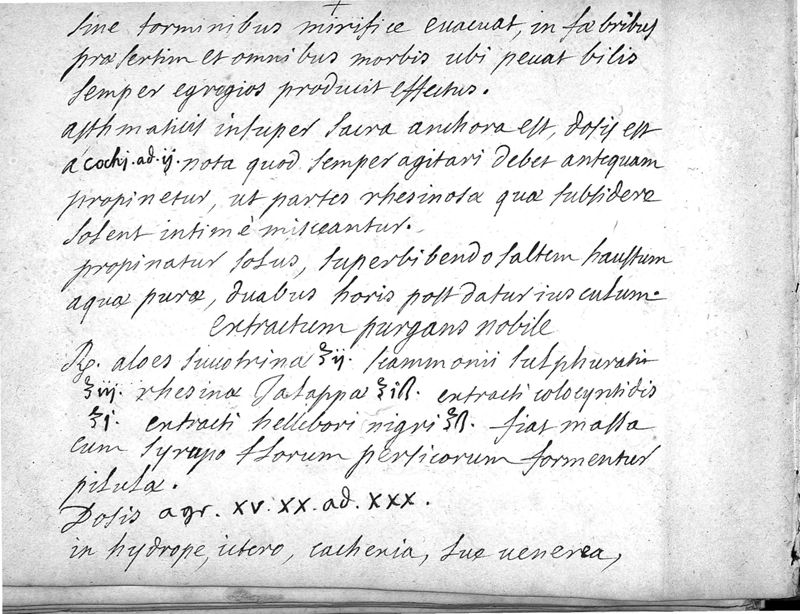 sine torminibus mirifice evacuat, in fæbribus
præsertim et omnibus morbis ubi pecat bilis
semper egregios producit effectus.
asthmaticis insuper sacra anchora est, dosis est
a cochj. ad. ij. nota quod semper agitari debet antequam
propinetur, ut partes rhesinosæ quæ subsidere
solent intimè misceantur.
propinatur solus, superbibendo saltem haustum
aquæ puræ, duabus horis post datur iusculum.
extractum purgans nobile
℞. aloes succotrinæ ℥ij. scammonii sulphurati
℥iij. rhesinæ Jalappæ ℥iß. extracti colocyntidis
℥j. extracti hellebori nigri ℥ß. fiat massa
cum syrupo florum persicorum formentur
pilulæ.
Dosis a gr. xv. xx. ad. xxx.
in hydrope, ictero, cachexia, lue venerea,